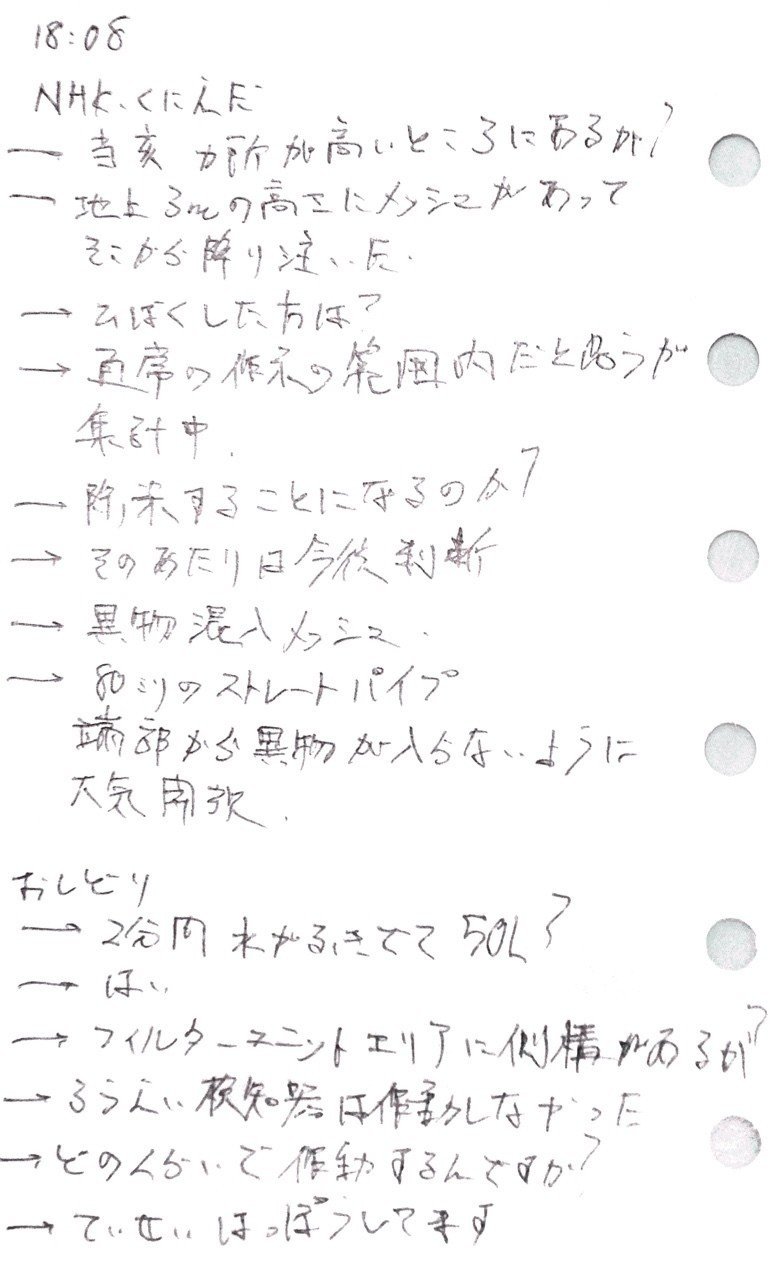 18:08
NHK、くにえだ
― 当亥 カ所が高いところにあるが?
― 地上3mの高さにメッシュがあって
そこから降り注いだ.
→ ひばくした方は?
→ 通常の作業の範囲内だと思うが
集計中.
→ 除染することになるのか?
→ そのあたりは今後判断
→ 異物混入メッシュ.
→ 80ミリのストレートパイプ
端部から異物が入らないように
大気開放.
おしどり
→ 2分間 水がふきでて 50L?
→ はい
→ フィルターユニットエリアに側構があるが?
→ ろうえい検知器は作動しなかった
→ どのくらいで作動するんですか?
→ していません はっぽうしてます